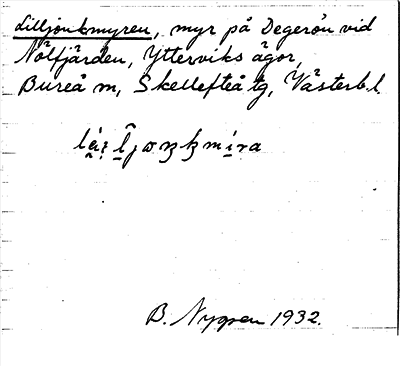 Lilljonkmyren, myr på Degerön vid
Nölfjärden, Ytterviks ägor,
Bureå m, Skellefteå tg, Västerb. l.
B. Nygren 1932.